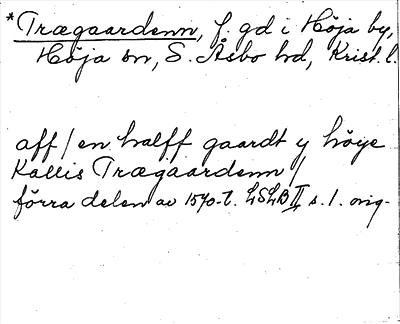 *Trægaardenn, f. gd i Höja by,
Höja sn, S. Åsbo hd, Krist. l.
aff / en halff gaardt y höye
Kallis Trægaardenn /
förra delen av 1540-t. LSLB II s. 1. orig.